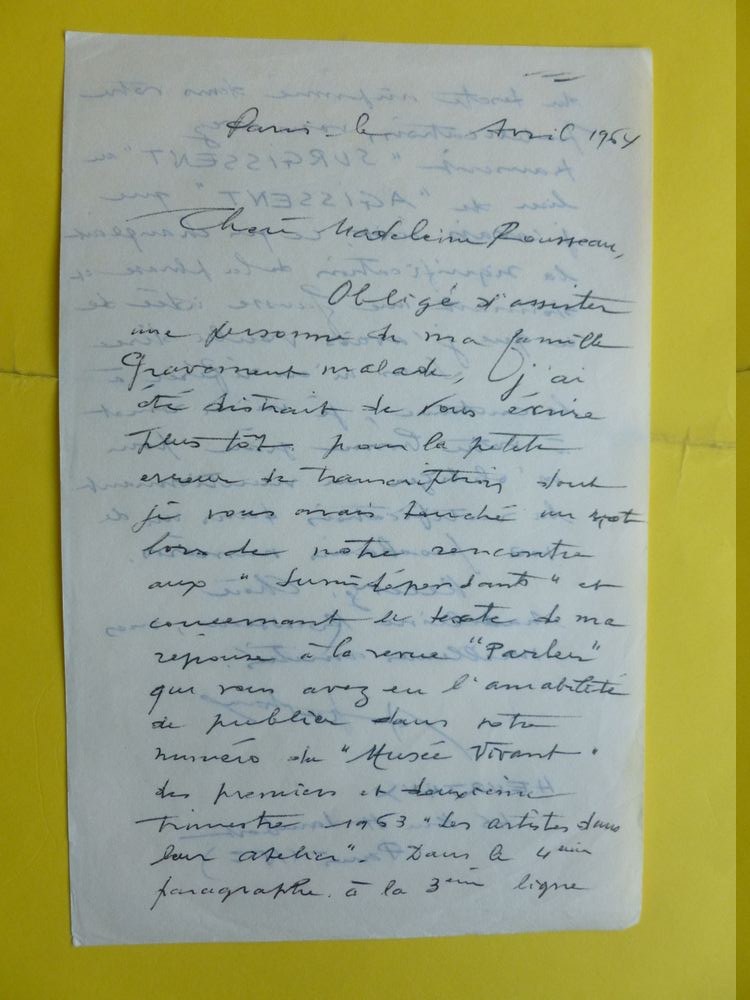 Paris - le Avril 1964
Chère Madeleine Rousseau,
Obligé d'assister
une personne de ma famille
gravement malade, j'ai
été distrait de vous écrire
plus tôt pour la petite
erreur de transcription dont
je vous avais touché un mot
lors de notre rencontre
aux "Surindépendants" et
concernant le texte de ma
réponse à la revue "Parler"
que vous avez eu l'amabilité
de publier dans votre
numéro du "Musée Vivant"
des premier et deuxième
trimestre 1963 "Les artistes dans
leur atelier". Dans le 4ème
paragraphe à la 3ème ligne